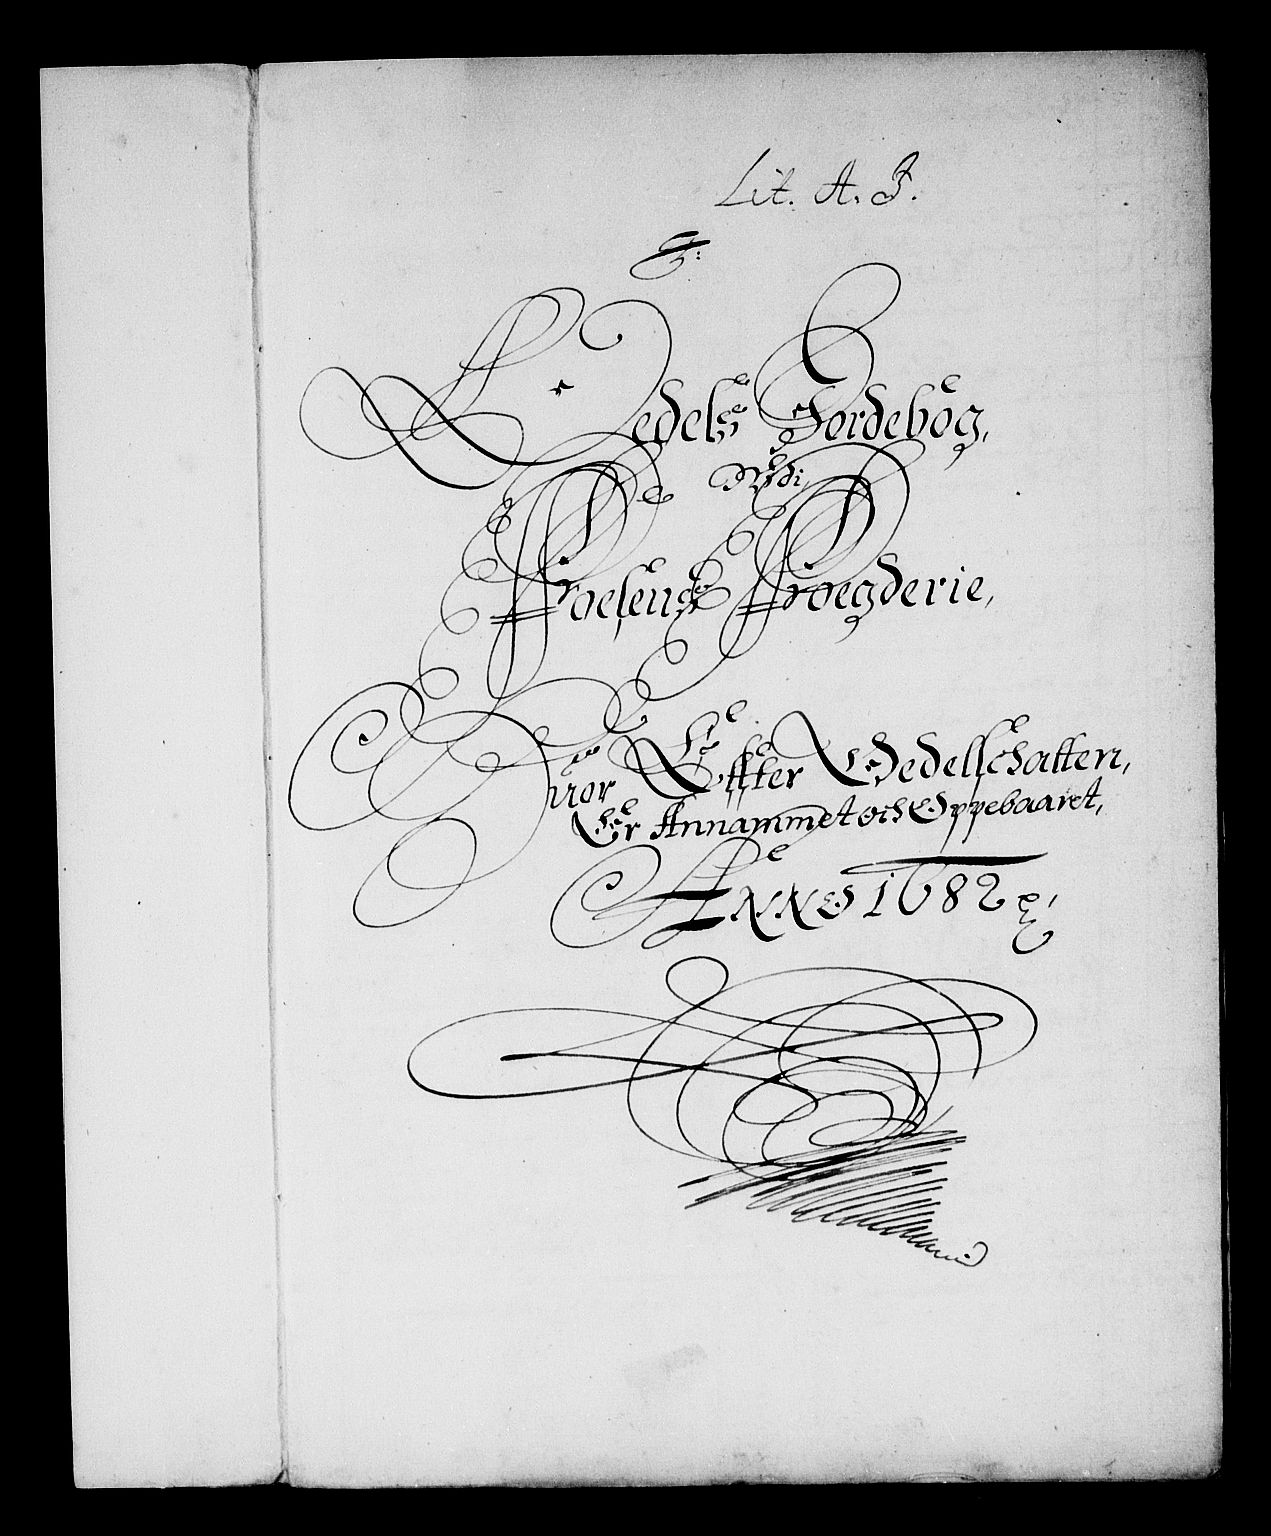 Lit. A. J.
Oedels Jordebog,
Vdi,
Foesens Foegderie,
Huor Effter Oedelschatten,
Er Annammet och Oppebaaret,
ANNO 1682